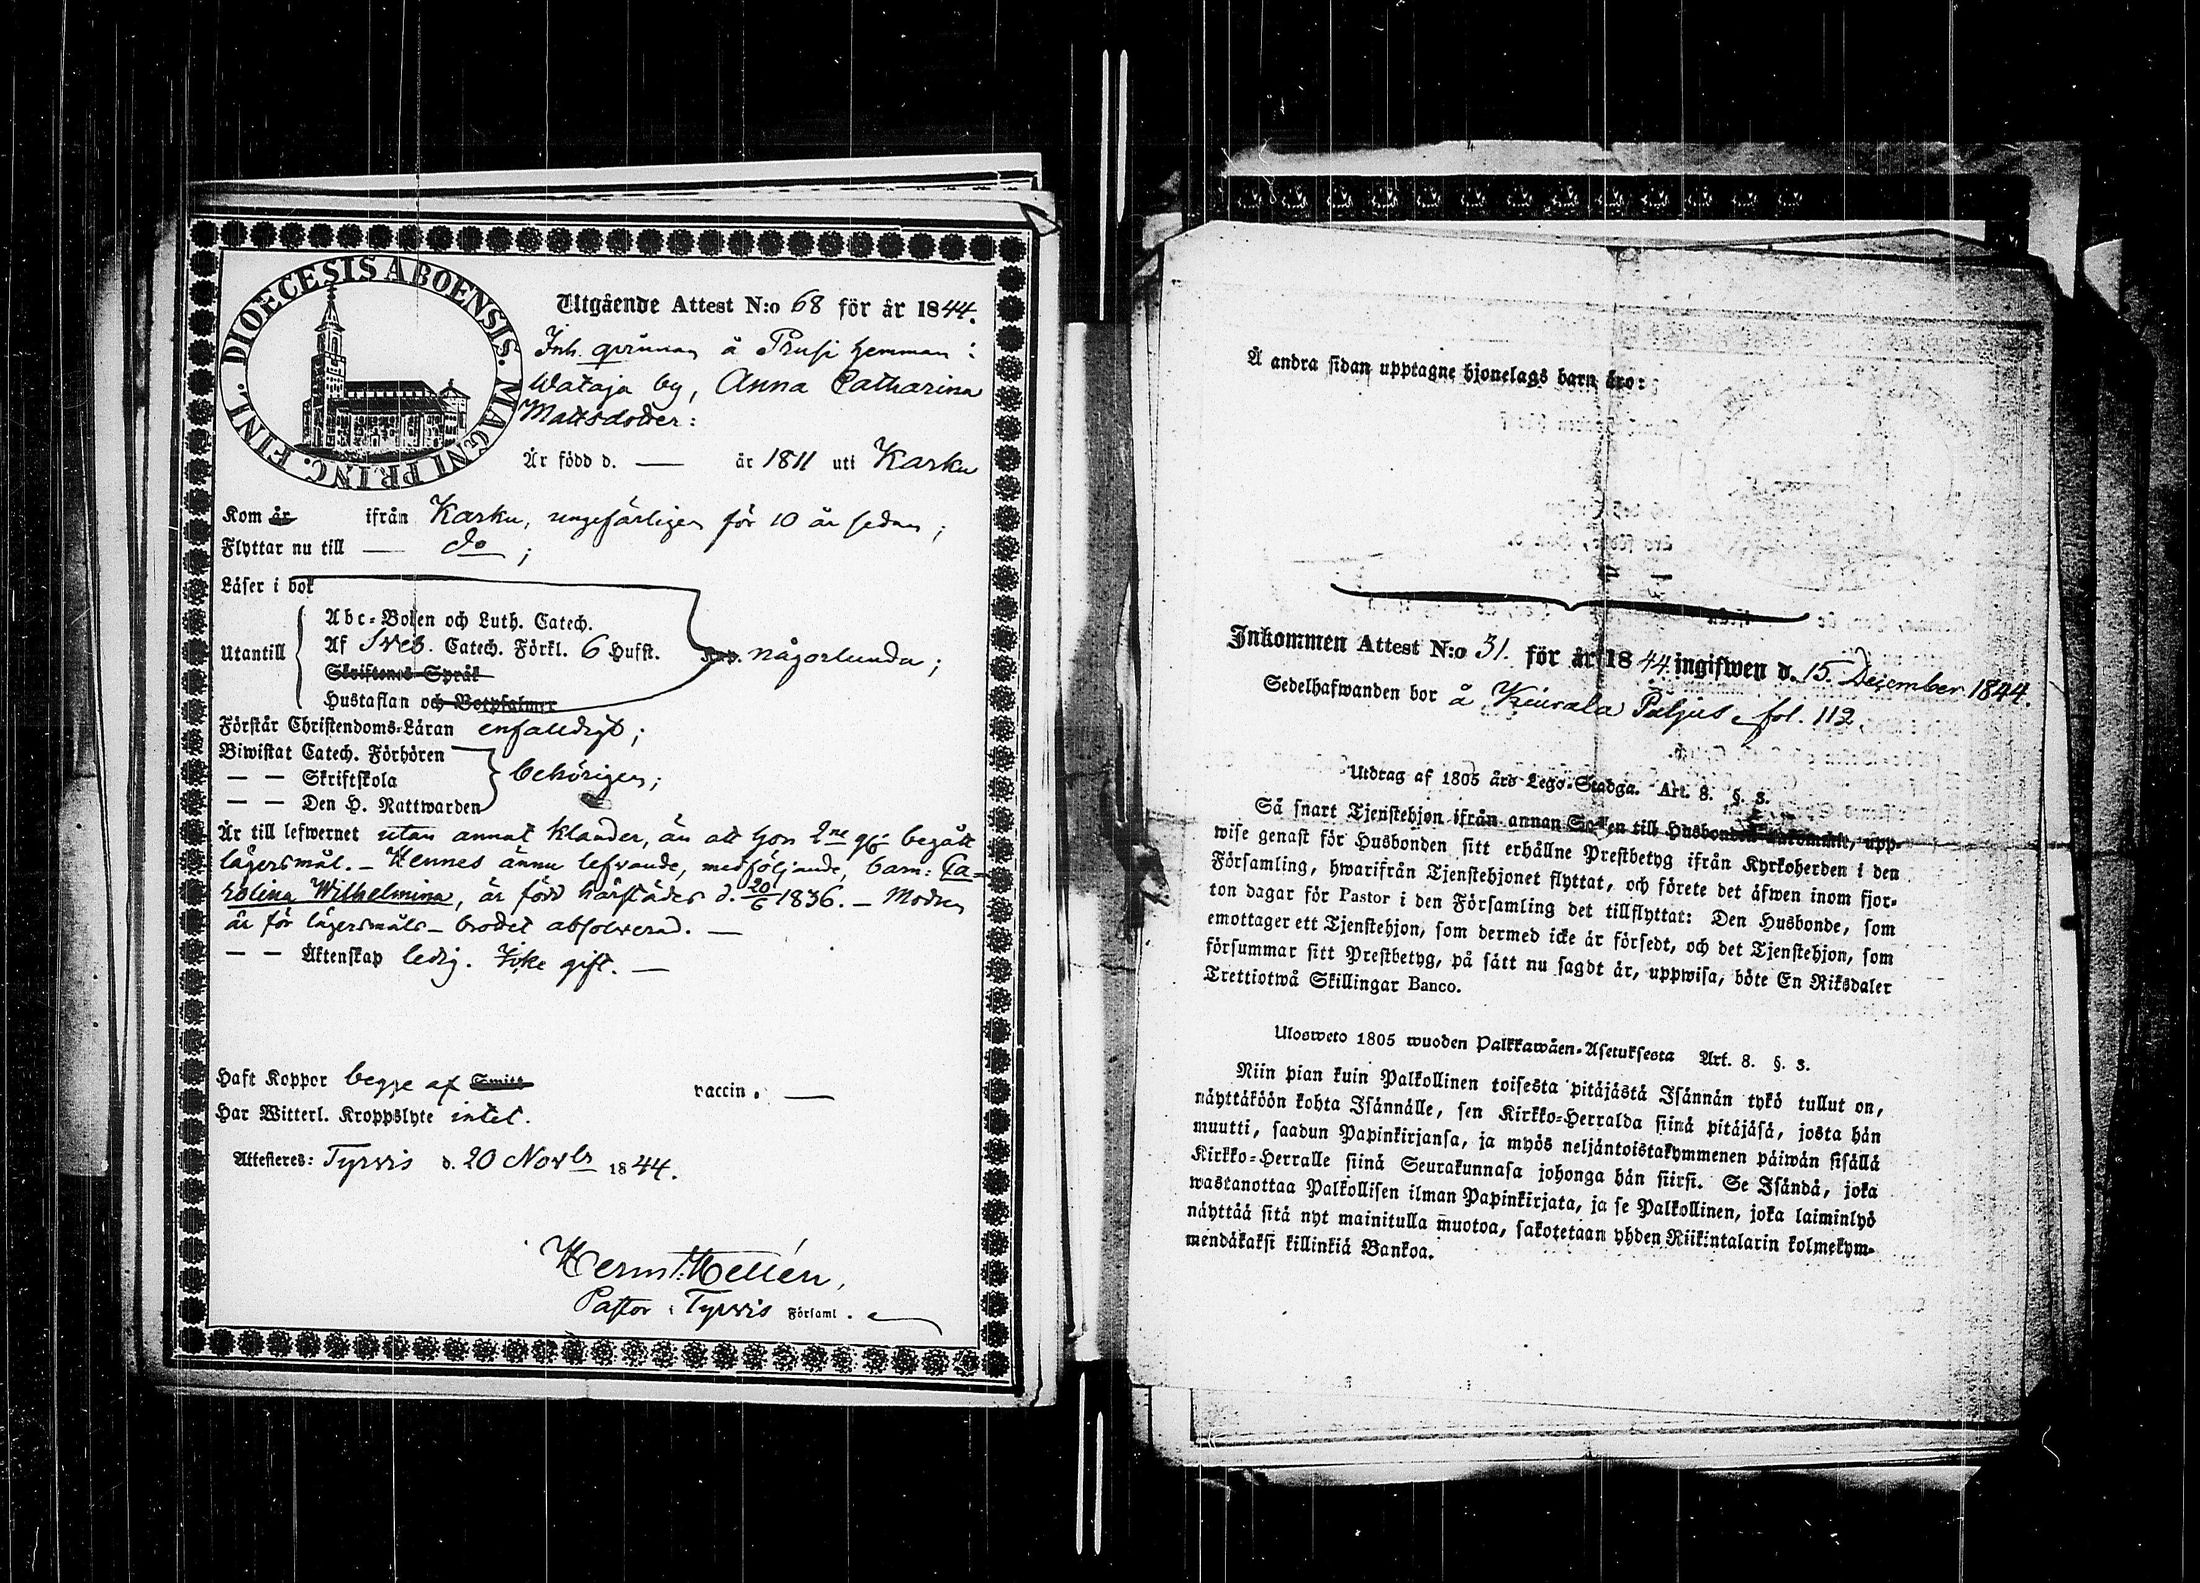 DIOECESIS ABOENSIS. MAGNI PRINC. FINL.
Utgående Attest N:o 68 för år 1844.
Inh. qvinnan å Prusi hemman i
Wataja by, Anna Catharina
Mattsdotter:
Är född d. — år 1811 uti Karku
Kom år ifrån Karku, ungefärligen för 10 år sedan;
Flyttar nu till — do;
Läser i bok
Utantill
Abc-Boken och Luth. Catech.
Af Sveb. Catech. Förkl. 6 Hufst. Kap. någorlunda;
Skriftenes Språk
Hustaflan och Botpsalmer
Förstår Christendoms-Läran enfalldigt;
Biwistat Catech. Förhören
— — Skriftskola behörigen;
— — Den H. Nattwarden
Är till lefwernet utan annat klander, än att hon 2ne ggr begått
lägersmål. - Hennes ännu lefvande, medföljande, barn: Ca-
rolina Wilhelmina, är född härstädes d. 20/6 1836. - Modren
är för lägersmåls-brottet absolverad. —
— — Äktenskap ledig. Icke gift. —
Haft Koppor begge af Smitt vaccin. —
Har Witterl. Kroppslyte intet.
Attesteres: Tyrvis d. 20 Novbr 1844.
Herm: Hellén,
Pastor i Tyrvis Församl.
Å andra sidan upptagne hjonelags barn äro:
Inkommen Attest N:o 31. för år 1844. ingifwen d. 15. December 1844.
Sedelhafwanden bor å Kiurala Päljus fol. 112.
Utdrag af 1805 års Lego-Stadga. Art. 8. §. 3.
Så snart Tjenstehjon ifrån annan Socken till Husbonden ankommit, upp-
wise genast för Husbonden sitt erhållne Prestbetyg ifrån Kyrkoherden i den
Församling, hwarifrån Tjenstehjonet flyttat, och förete det äfwen inom fjor-
ton dagar för Pastor i den Församling det tillflyttat: Den Husbonde, som
emottager ett Tjenstehjon, som dermed icke är försedt, och det Tjenstehjon, som
försummar sitt Prestbetyg, på sätt nu sagdt är, uppwisa, böte En Riksdaler
Trettiotwå Skillingar Banco.
Ulosweto 1805 wuoden Palkkawäen-Asetuksesta Art. 8. §. 3.
Niin pian kuin Palkollinen toisesta pitäjästä Isännän tykö tullut on,
näyttäköön kohta Isännälle, sen Kirkko-Herralda siinä pitäjäsä, josta hän
muutti, saadun Papinkirjansa, ja myös neljäntoistakymmenen päiwän sisällä
Kirkko-Herralle siinä Seurakunnasa johonga hän siirsi. Se Isändä, joka
wastanottaa Palkollisen ilman Papinkirjata, ja se Palkollinen, joka laiminlyö
näyttää sitä nyt mainitulla muotoa, sakotetaan yhden Riikintalarin kolmekym-
mendäkaksi killinkiä Bankoa.